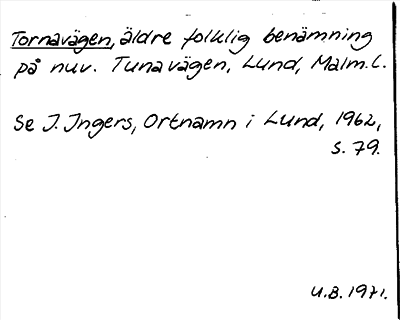 Tornavägen, äldre folklig benämning
på nuv. Tunavägen, Lund, Malm.L.
Se J. Ingers, Ortnamn i Lund, 1962,
s. 79.
U.B. 1971.